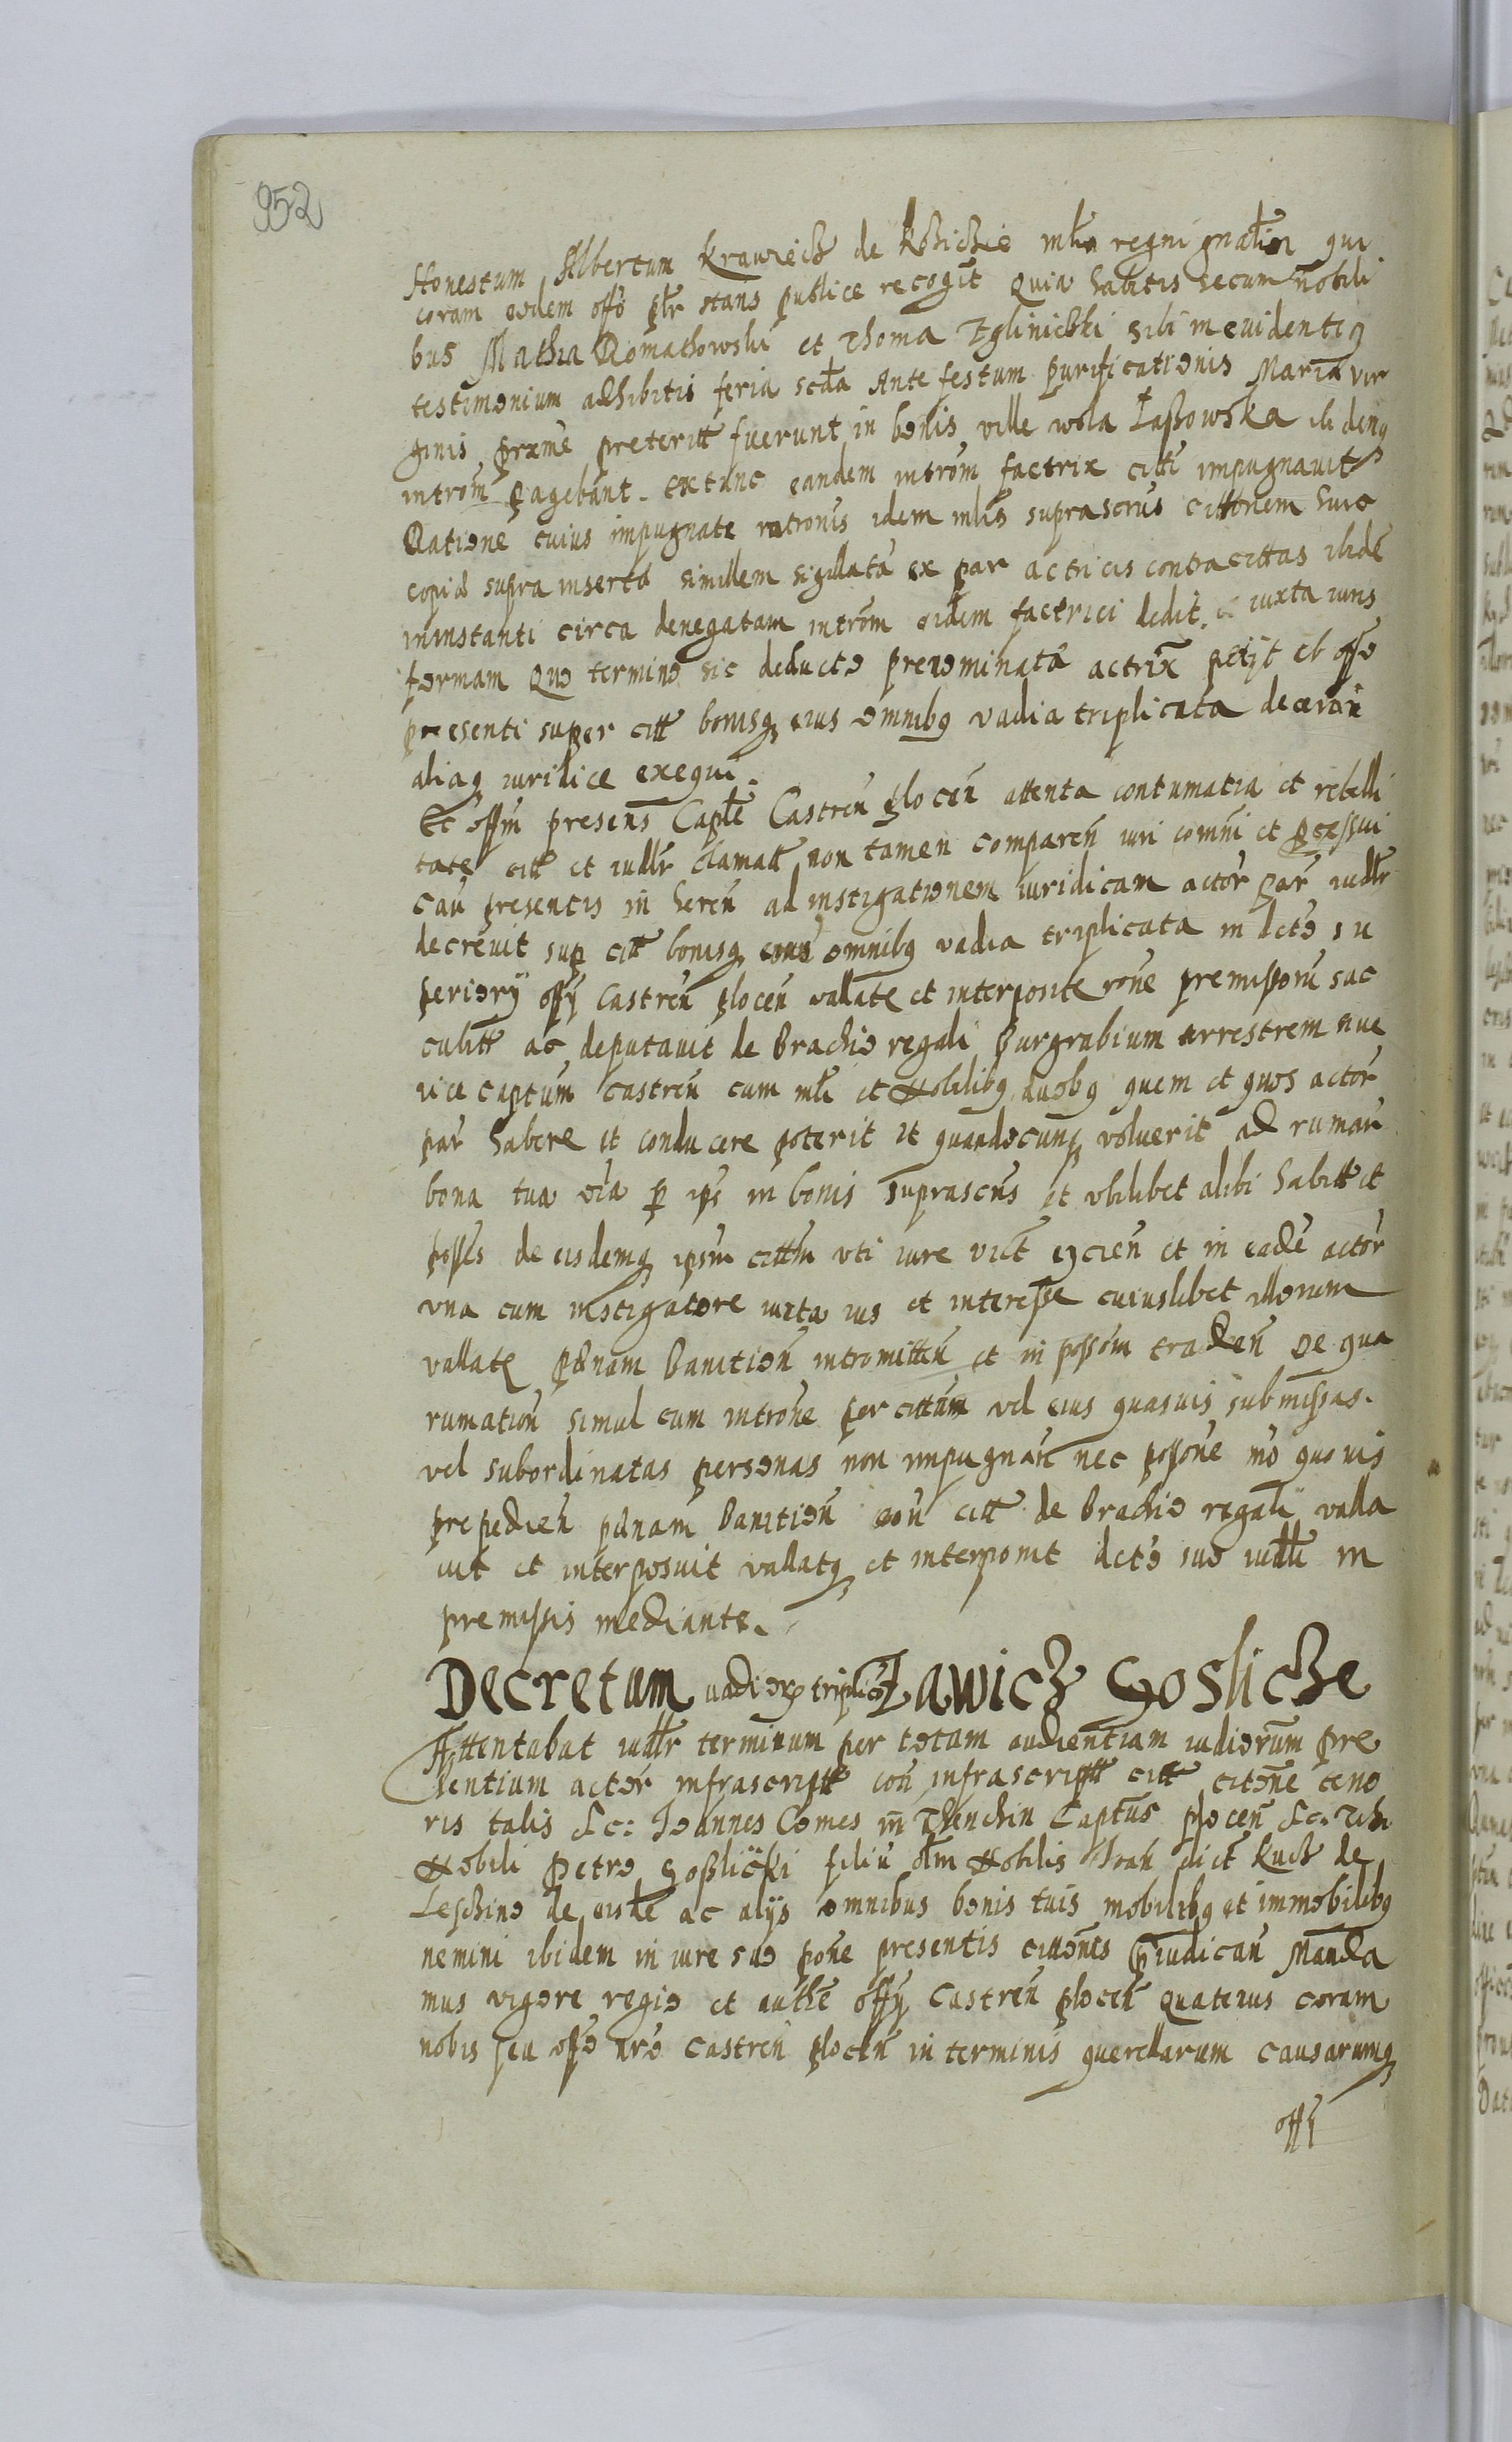 952
Honestum Albertum Krawiecz de Kosicze mlrm regni gnalem qui
coram eodem offo plr stans publice recogit Quia habitis secum nobili
bus Mathia Romathowski et Thoma Zglinichi sibi in euidentig
testimonium adhibitis feria scda Ante festum purificationis Maria vir
ginis prxme preteritt fuerunt in bonis ville wola Łaßowska ibideng
introm pagebant. extunc eandem introm factrix citti impugnauit
Ratione cuius impugnate intronis idem mlis suprascrus cittonem huic
copia supra inserta simillem sigillatã ex par actricis contra cittas ibidẽ
in instanti circa denegatam introm eidem factrici dedit. iuxta iuris
formam Quo termino sic deducto prenominatã actrix petijt ab offo
presenti super citt bonisq eius omnibg vadia triplicata decerni
aliaq iuridice exequi.
Et offm presens Caple Castren plocen attenta contumatia et rebelli
tate citt et iudlr clamatt non tamen comparen iuri comni et
cau presentis in heren ad instigationem iuridicam actor par iudlr
decreuit sup citt bonisq eius omnibg vadia triplicata in dcto su
periory offy Castren plocen vallate et interposite rone premissoru sac
cubitt ac deputauit de Brachio regali Burgrabium arrestrem siue
vice captum castren cum mli et Nobilibg duobg quem et quos actor
par habere et conducere poterit et quandocunq voluerit ad rumar
bona tua oia p ips in bonis suprascris et vbilibet alibi habitt et
posses de eisdemq ipsm cittm vti iure vict eycien et in eade actor
vna cum instigatore iuxta ius et interesse cuiuslibet illorum
vallate penam Banition intromitten et in possom traden De qua
rumation simul cum introne per cittum vel eius quasuis submissas.
vel subordinatas personas non impugnan nec possone mo quouis
prepedien penam Banition con citt de Brachio regali valla
uit et interposuit vallatq et interponit dcto suo iudlli in
premissis mediante.
Decretum vadior triplic Ławicz Goslicze
Attentabat iudlr terminum per totam audientiam iudiorum pre
sentium actor infrascriptt con infrascriptt citt citone teno
ris talis &c: Joannes Comes in Thenchin Captus plocen &c. Tibi
Nobili Petro Goßlicki filiu olm Nobilis Joan dict Kucz de
Leschino de eisde ac alijs omnibus bonis tuis mobilibg et immobilibg
nemini ibidem in iure suo pone presentis cittonis piudican Manda
mus vigore regio et authe offy Castren plocen Quatenus coram
nobis seu offo nro Castren plocen in terminis querellarum causarumq
offy